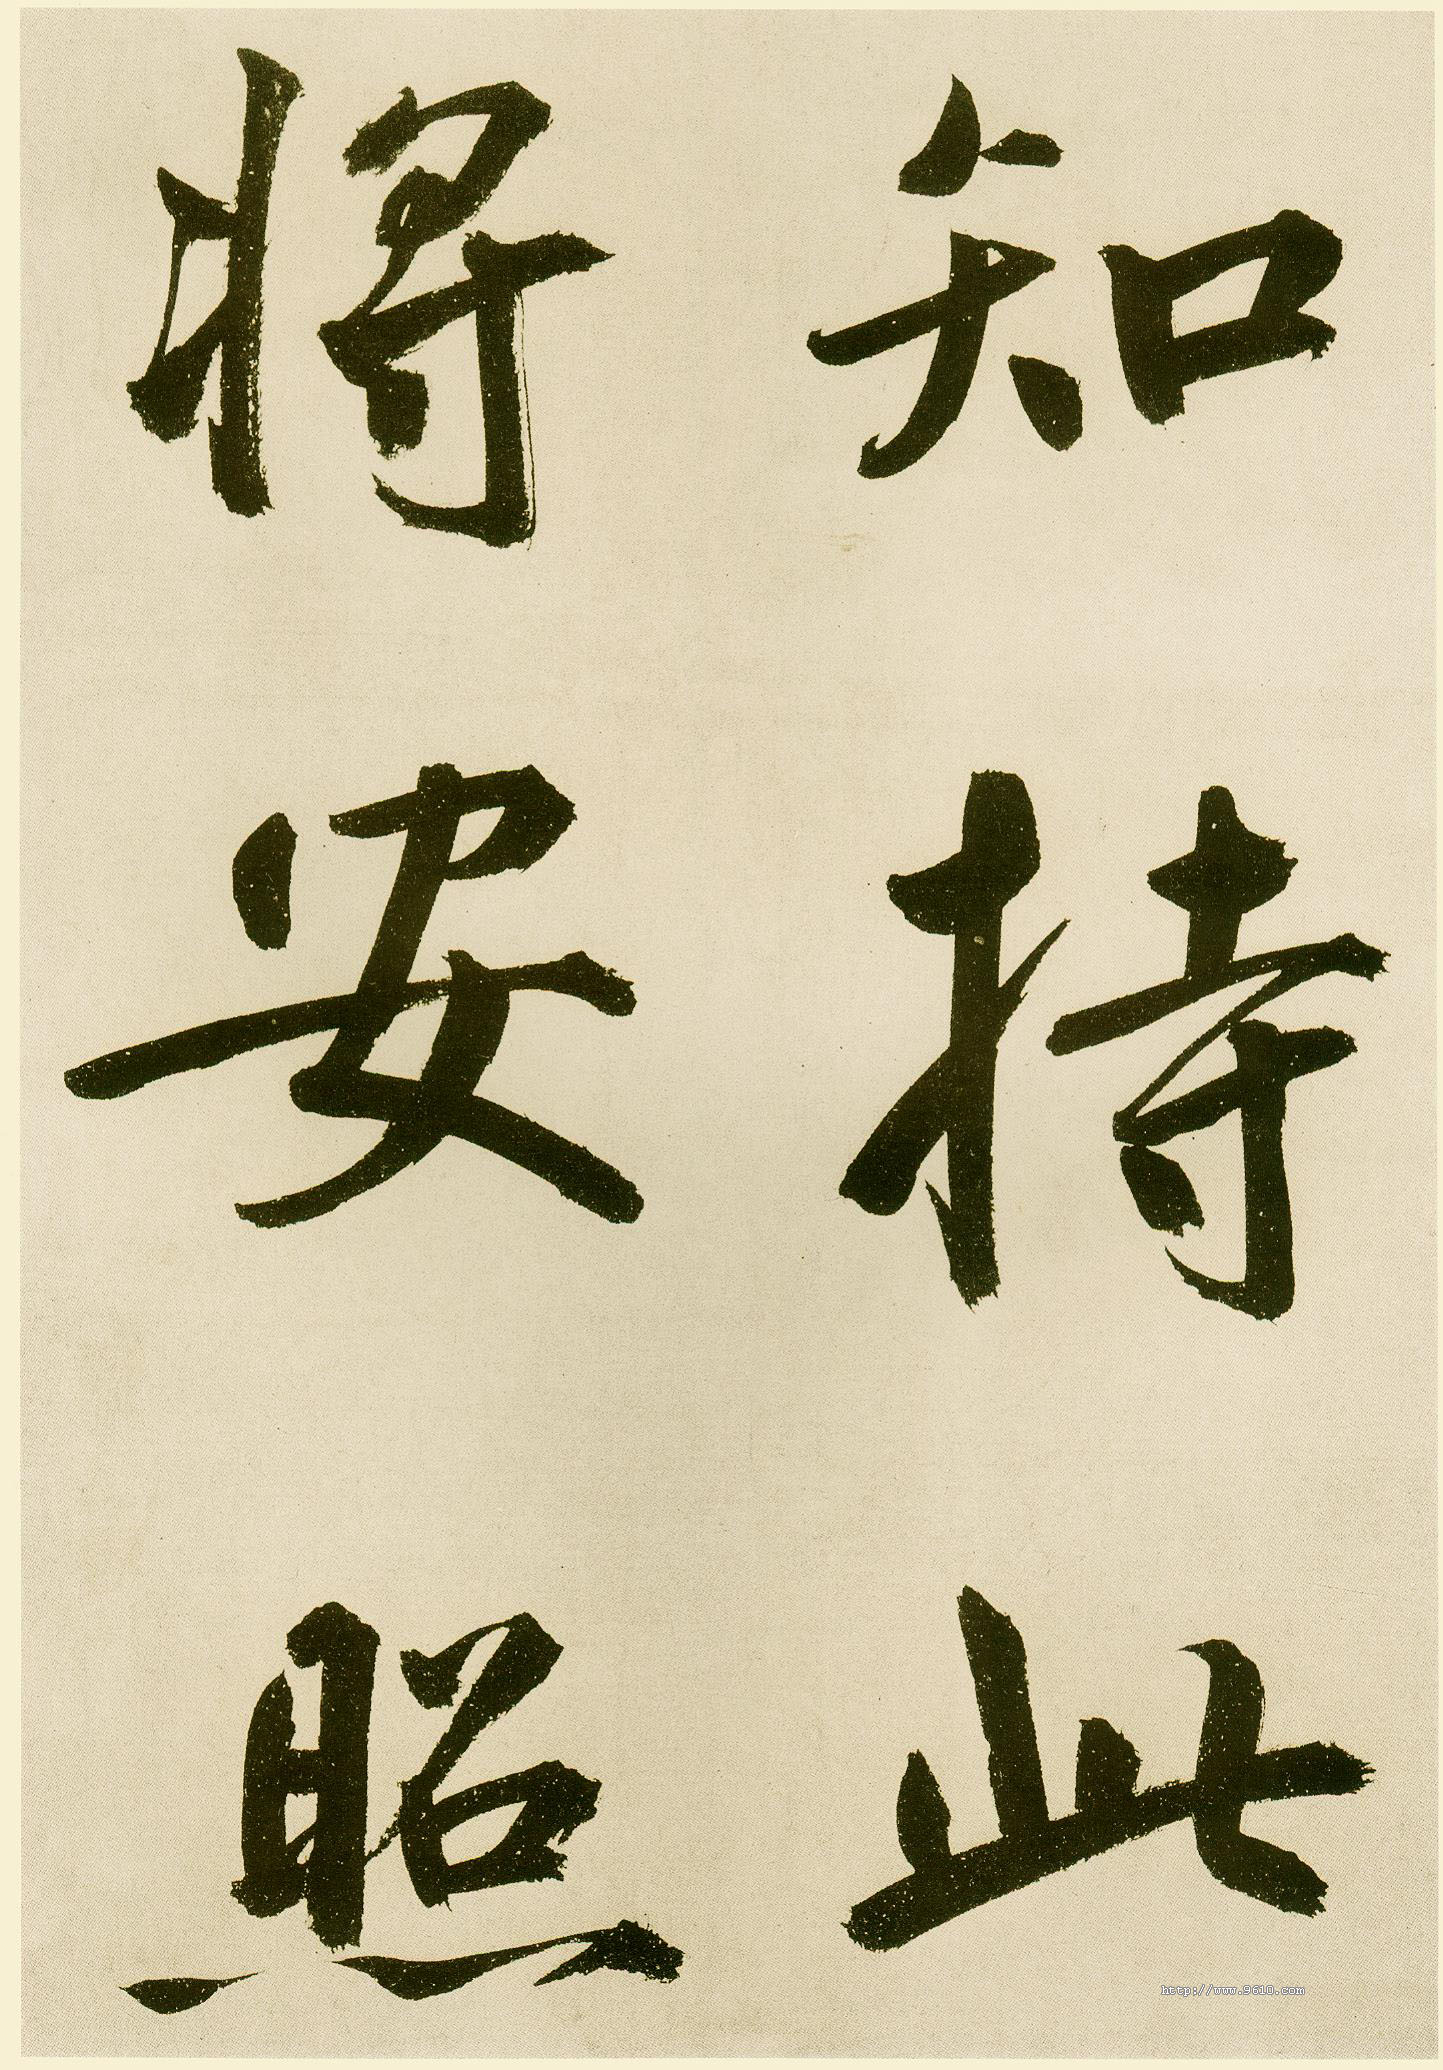 知持此
将安照
http://www.9610.com